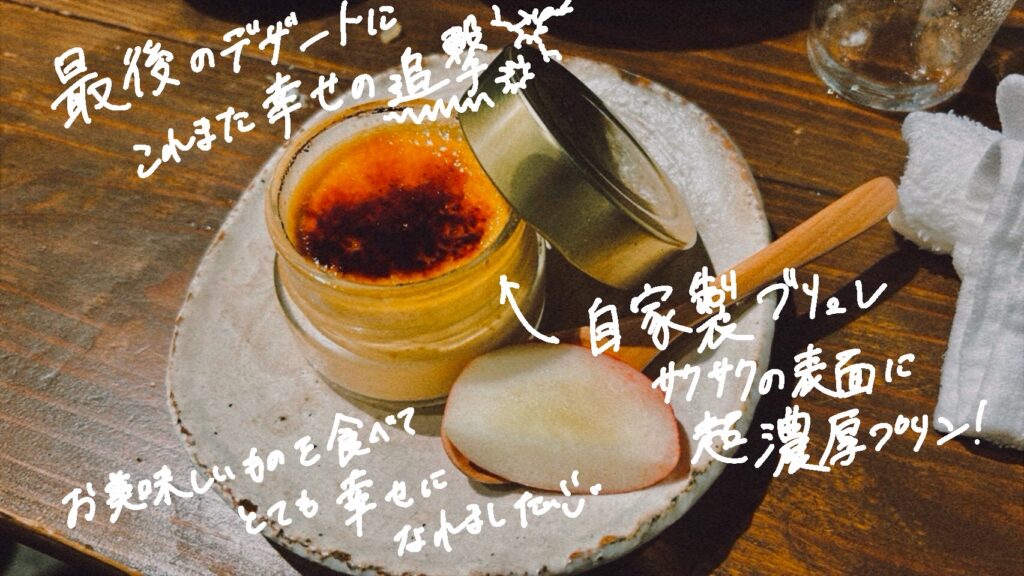 最後のデザートに
これまた幸せの追撃
自家製ブリュレ
サクサクの表面に
超濃厚プリン!
お美味しいものを食べて
とても幸せに
なれました